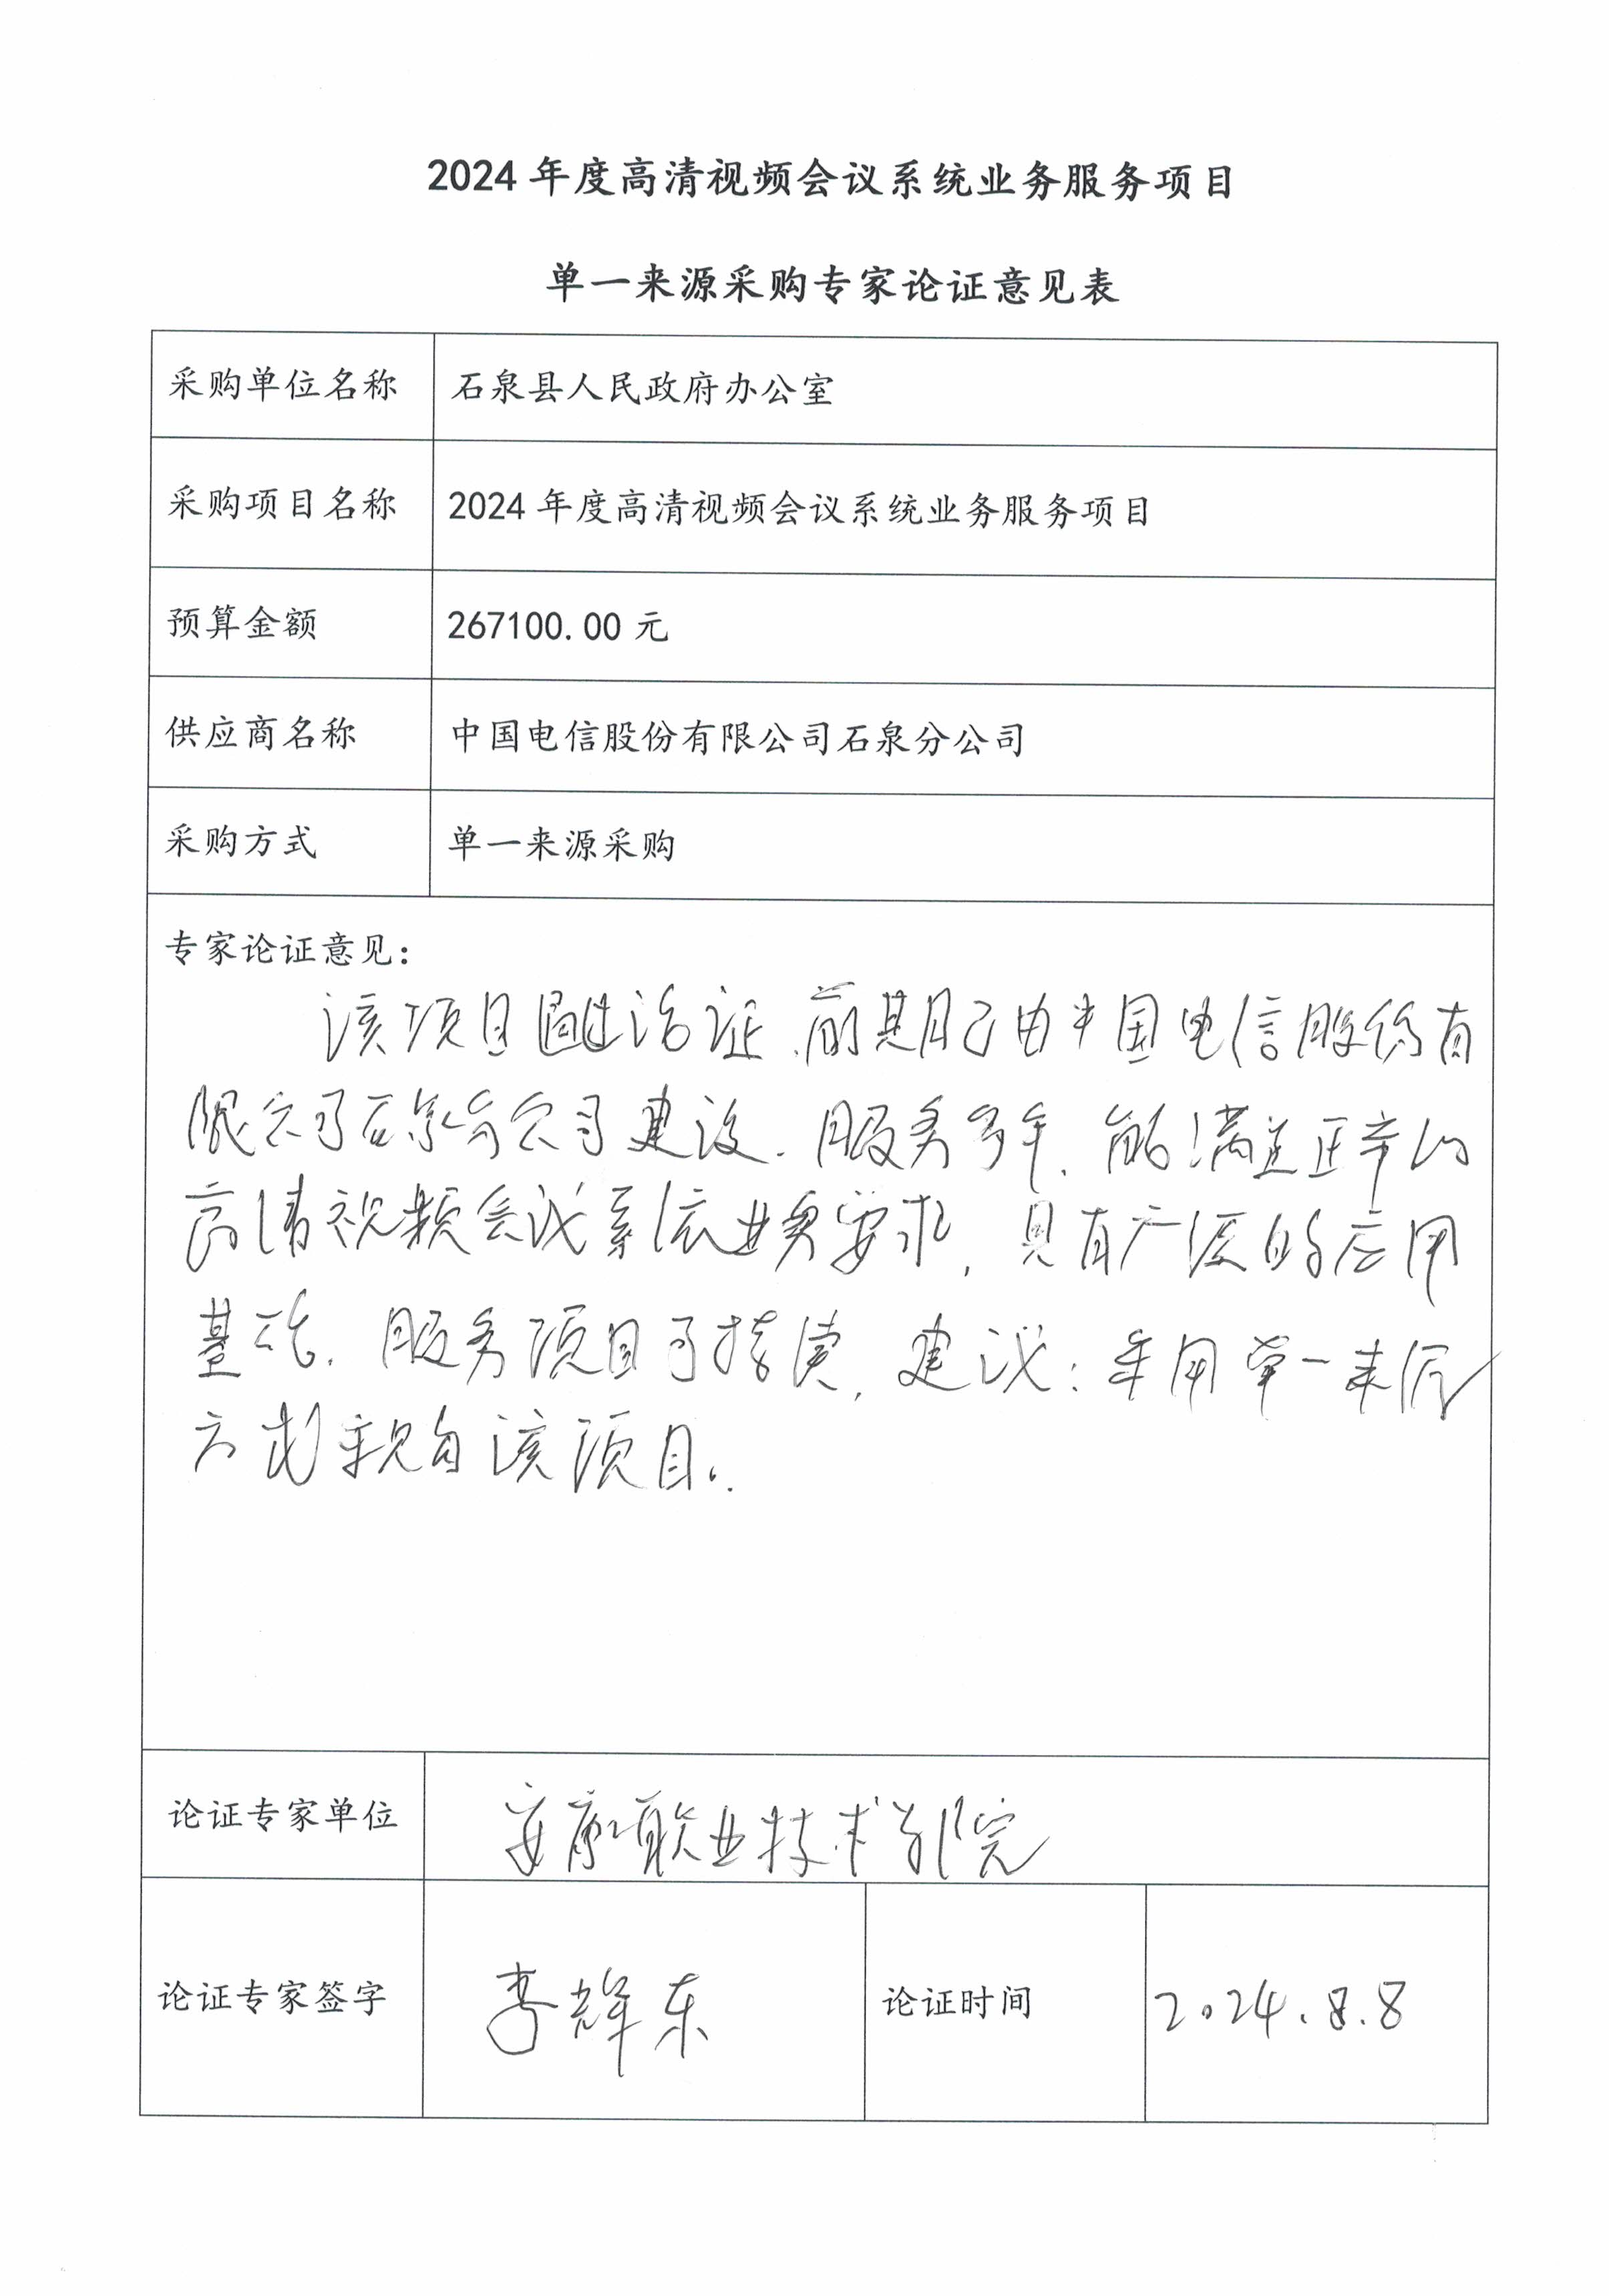 2024 年度高清视频会议系统业务服务项目
单一来源采购专家论证意见表
采购单位名称 石泉县人民政府办公室
采购项目名称 2024 年度高清视频会议系统业务服务项目
预算金额 267100.00 元
供应商名称 中国电信股份有限公司石泉分公司
采购方式 单一来源采购
专家论证意见：
该项目通过论证，前期已由中国电信股份有
限公司石泉分公司建设，服务多年，能满足正常的
高清视频会议系统业务要求，具有广泛的应用
基础，服务项目可持续，建议：采用单一来源
方式采购该项目。
论证专家单位 安康职业技术学院
论证专家签字 李辉东 论证时间 2024.8.8